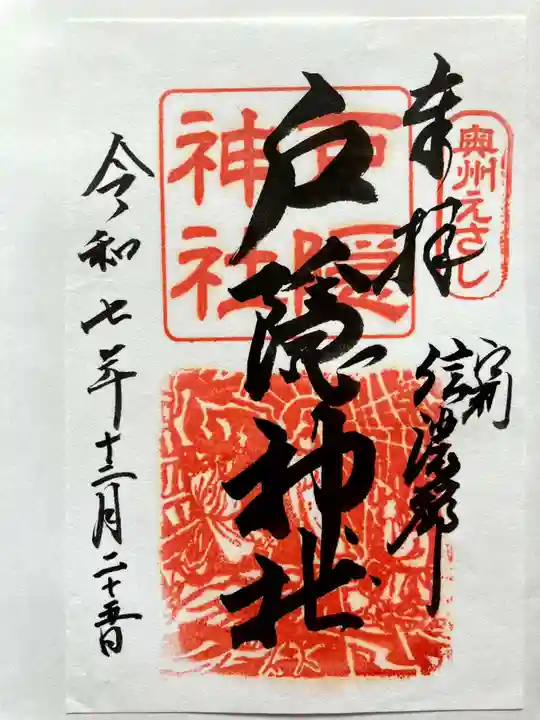 奥州えさし
奉拝
戸隠神社
戸隠
神社
令和七年十二月二十五日